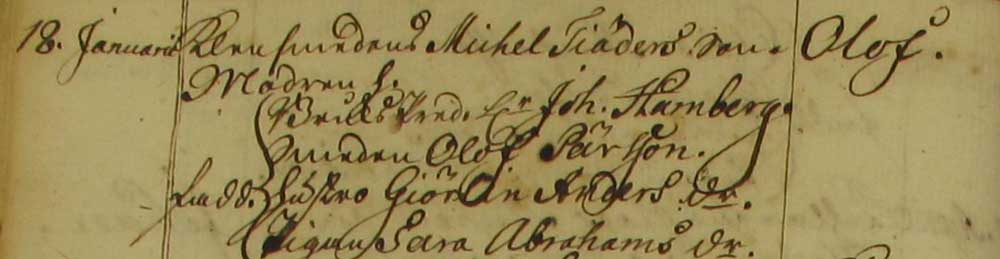 18. Januarii Klensmedens Michel Tiäders Son. Olof.
Modren h.
Bruks Pred. Er Joh. Hamberg.
Smeden Olof Pärsson.
fadd. Hustro Giörlin Anders dr.
Pigan Sara Abrahams dr.